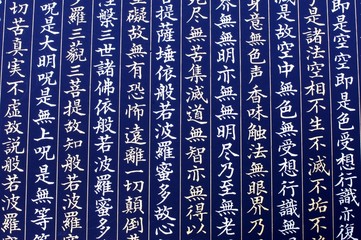 是空空即是色受想行識亦復
是諸法空相不生不滅不垢不
是故空中無色無受想行識無
身意無色声香味触法無眼界乃
無無明亦無無明尽乃至無老
死尽無苦集滅道無智亦無得以
菩提薩埵依般若波羅蜜多故心
礙故無有恐怖遠離一切顛倒
槃三世諸佛依般若波羅蜜多
羅三藐三菩提故知般若波羅
是大明呪是無上呪是無等
切苦真実不虚故説般若波羅